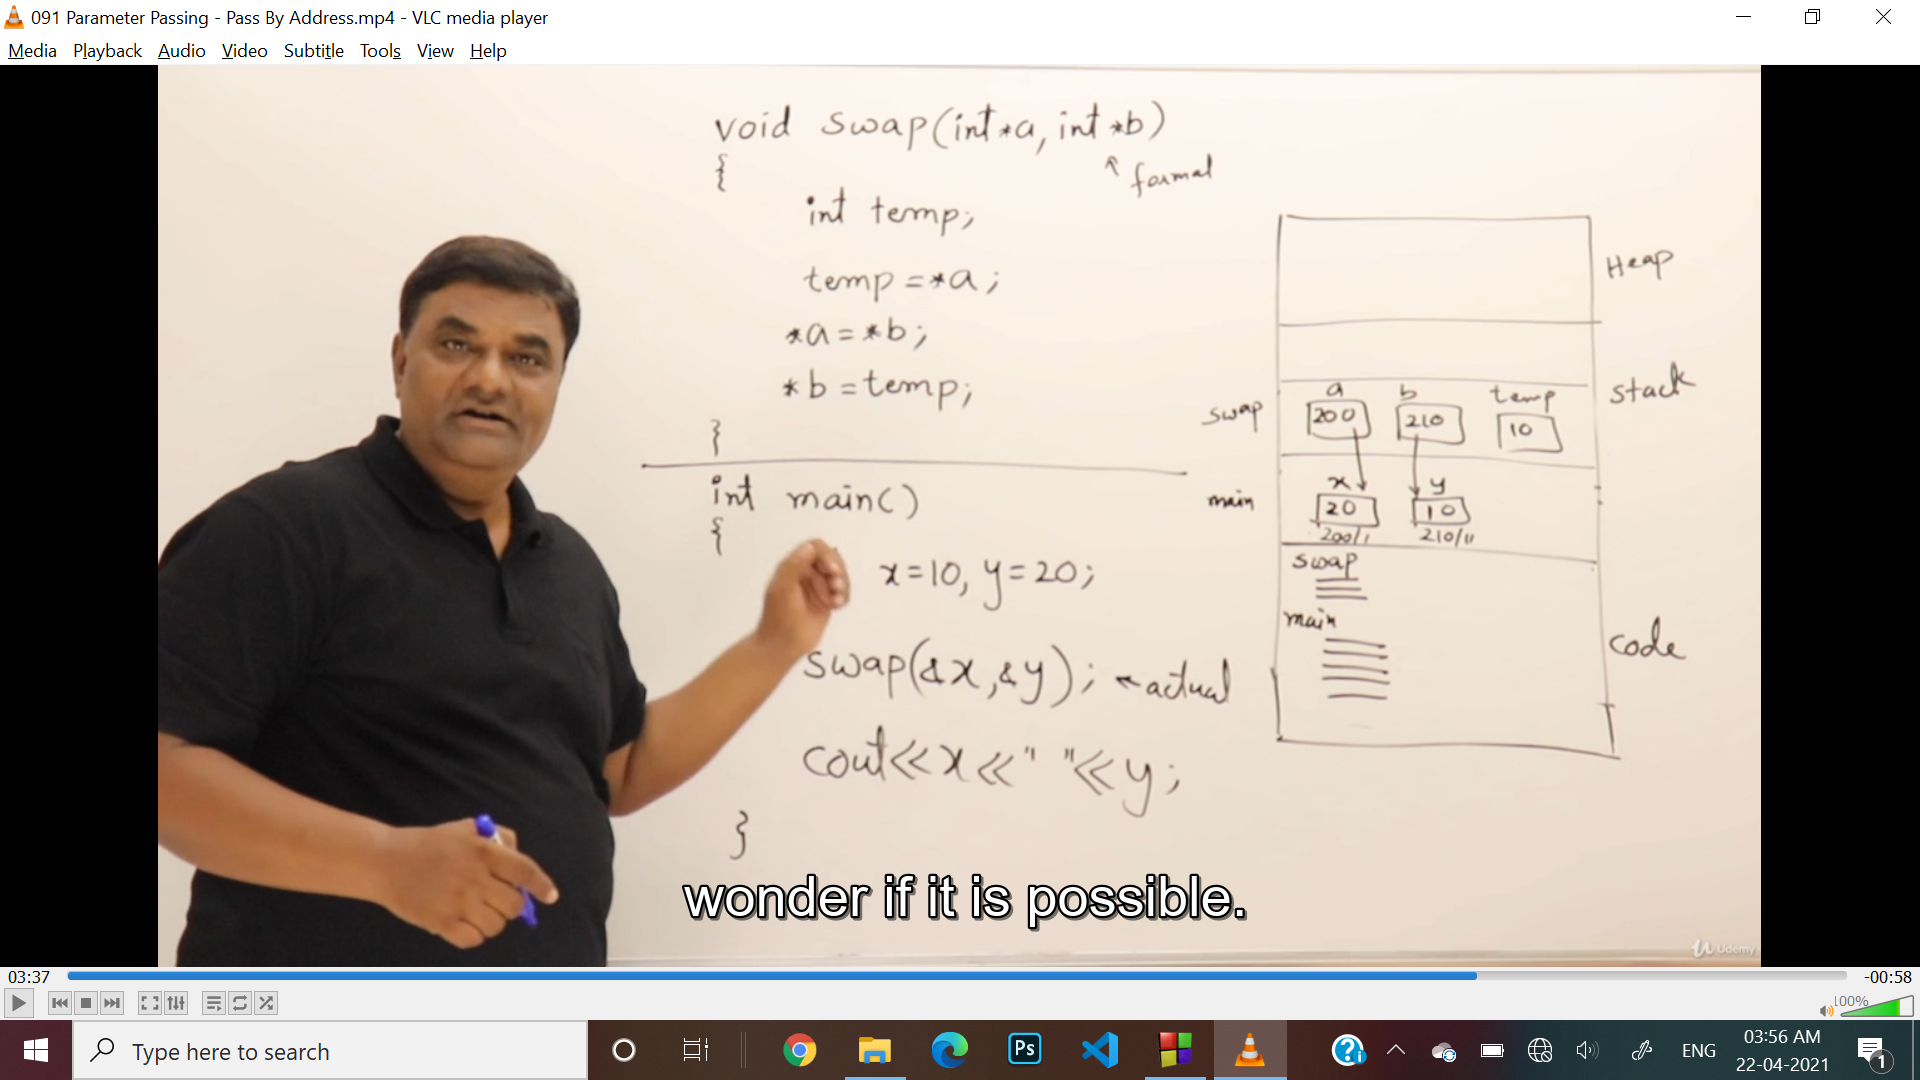 091 Parameter Passing - Pass By Address.mp4 - VLC media player
Media Playback Audio Video Subtitle Tools View Help
void swap(int *a, int *b)
{
formal
int temp;
temp = *a;
*a = *b;
*b = temp;
}
int main()
{
x=10, y=20;
swap(&x, &y); ← actual
cout<<x<<" "<<y;
}
Heap
stack
a b temp
swap 200 210 10
x y
main 20 10
200/1 210/11
swap
main
code
wonder if it is possible.
Udemy
03:37 -00:58
100%
Type here to search
Ps
ENG
03:56 AM
22-04-2021
1